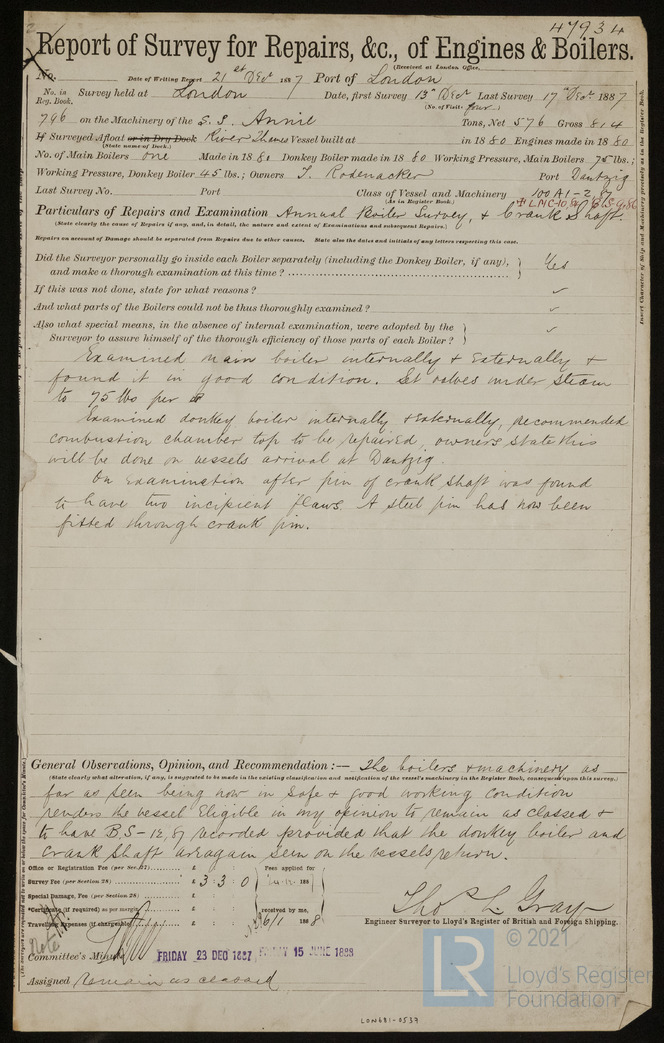 47934
Report of Survey for Repairs, &c., of Engines & Boilers.
(Received at London Office,
No. Date of Writing Report 21st Decr 1887 Port of London
No. in Reg. Book. Survey held at London Date, first Survey 13th Decr Last Survey 17th Decr 1887
(No. of Visits four)
796 on the Machinery of the S.S. Annie Tons, Net 576 Gross 814
If Surveyed Afloat or in Dry Dock River Thames Vessel built at in 1880 Engines made in 1880
(State name of Dock.)
No. of Main Boilers one Made in 1880 Donkey Boiler made in 1880 Working Pressure, Main Boilers 75 lbs.;
Working Pressure, Donkey Boiler 45 lbs.; Owners T. Rodenacker Port Dantzig
Last Survey No. Port Class of Vessel and Machinery 100 A1-2,87
(As in Register Book.)
Particulars of Repairs and Examination Annual Boiler Survey, & Crank Shaft.
(State clearly the cause of Repairs if any, and, in detail, the nature and extent of Examinations and subsequent Repairs.)
Repairs on account of Damage should be separated from Repairs due to other causes. State also the dates and initials of any letters respecting this case.
Did the Surveyor personally go inside each Boiler separately (including the Donkey Boiler, if any),
and make a thorough examination at this time? Yes
If this was not done, state for what reasons? ✓
And what parts of the Boilers could not be thus thoroughly examined? ✓
Also what special means, in the absence of internal examination, were adopted by the
Surveyor to assure himself of the thorough efficiency of those parts of each Boiler? ✓
Examined main boiler internally & externally &
found it in good condition. Set valves under steam
to 75 lbs per
Examined donkey boiler internally & externally, recommended
combustion chamber top to be repaired, owners state this
will be done on vessels arrival at Dantzig.
On Examination after pin of crank shaft was found
to have two incipient flaws. A steel pin has now been
fitted through crank pin.
General Observations, Opinion, and Recommendation :— The boilers & machinery as
(State clearly what alteration, if any, is suggested to be made in the existing classification and notification of the vessel's machinery in the Register Book, consequent upon this survey.)
far as seen being now in safe & good working condition
renders the vessel Eligible in my opinion to remain as classed &
to have B.S-12,87 recorded provided that the donkey boiler and
crank shaft are again seen on the vessels return.
Office or Registration Fee (per Sec. 28) £ : : Fees applied for
Survey Fee (per Section 28) £ 3 : 3 : 0 1887
Special Damage, Fee (per Section 28) £ : :
*Certificate (if required) as per margin £ : : received by me,
Travelling Expenses (if chargeable) £ : : 1888
Thos S. Gray
Engineer Surveyor to Lloyd's Register of British and Foreign Shipping.
Committee's Minute FRIDAY 23 DEC 1887 FRIDAY 15 JUNE 1888
Assigned remain as classed
LON681-0537
LR
© 2021
Lloyd's Register
Foundation